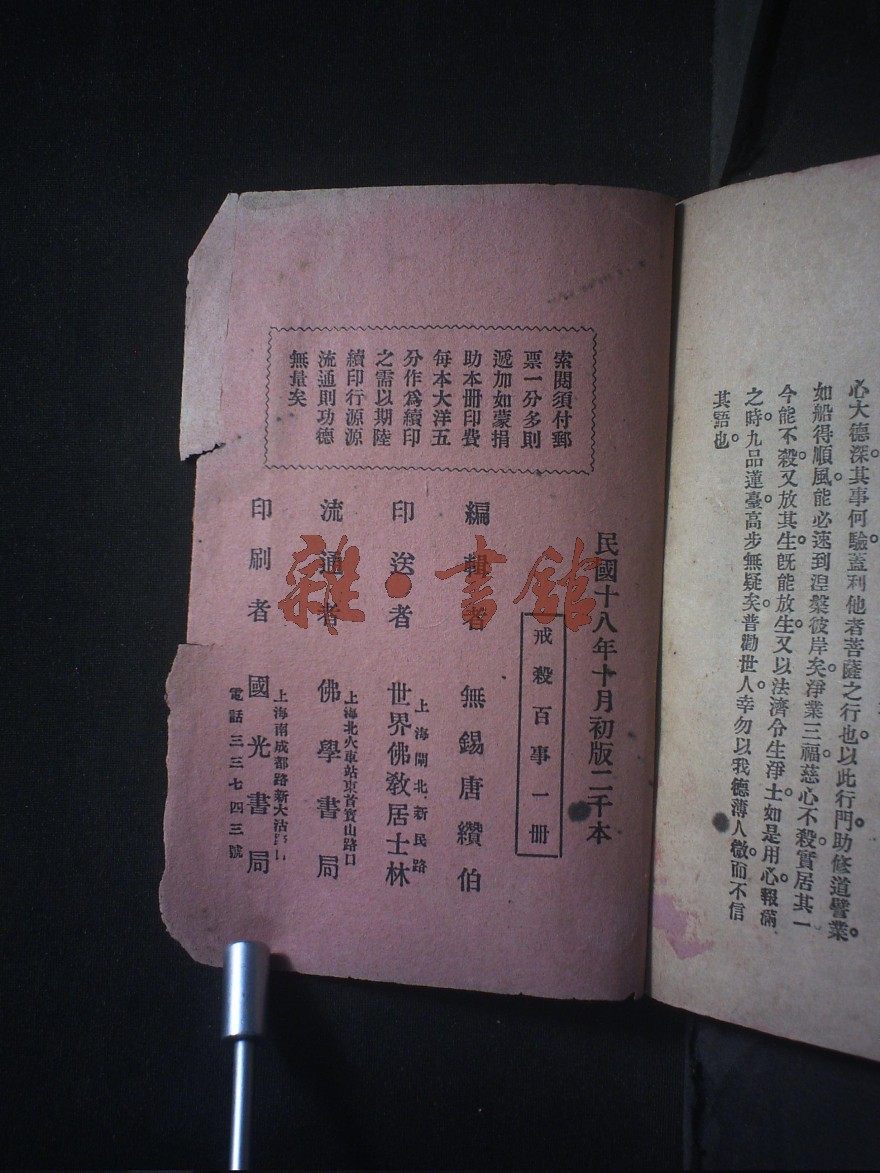 心大德深。其事何驗。蓋利他者菩薩之行也。以此行門助修道譬業。
如船得順風。能必速到涅槃彼岸矣。淨業三福。慈心不殺。實居其一。
今能不殺。又放其生。旣能放生。又以法濟令生淨土。如是用心。報滿
之時。九品蓮臺。高步無疑矣。普勸世人。幸勿以我德薄人微而不信
其語也。
民國十八年十月初版二千本
戒殺百事一册
編輯者 無錫唐纘伯
上海閘北新民路
印送者 世界佛敎居士林
上海北火車站東首寳山路口
流通者 佛學書局
上海南成都路新大沽路口
印刷者 國光書局
電話三三七四三號
索閱須付郵
票一分多則
遞加如蒙捐
助本册印費
每本大洋五
分作爲續印
之需以期陸
續印行源源
流通則功德
無量矣
雜·書館